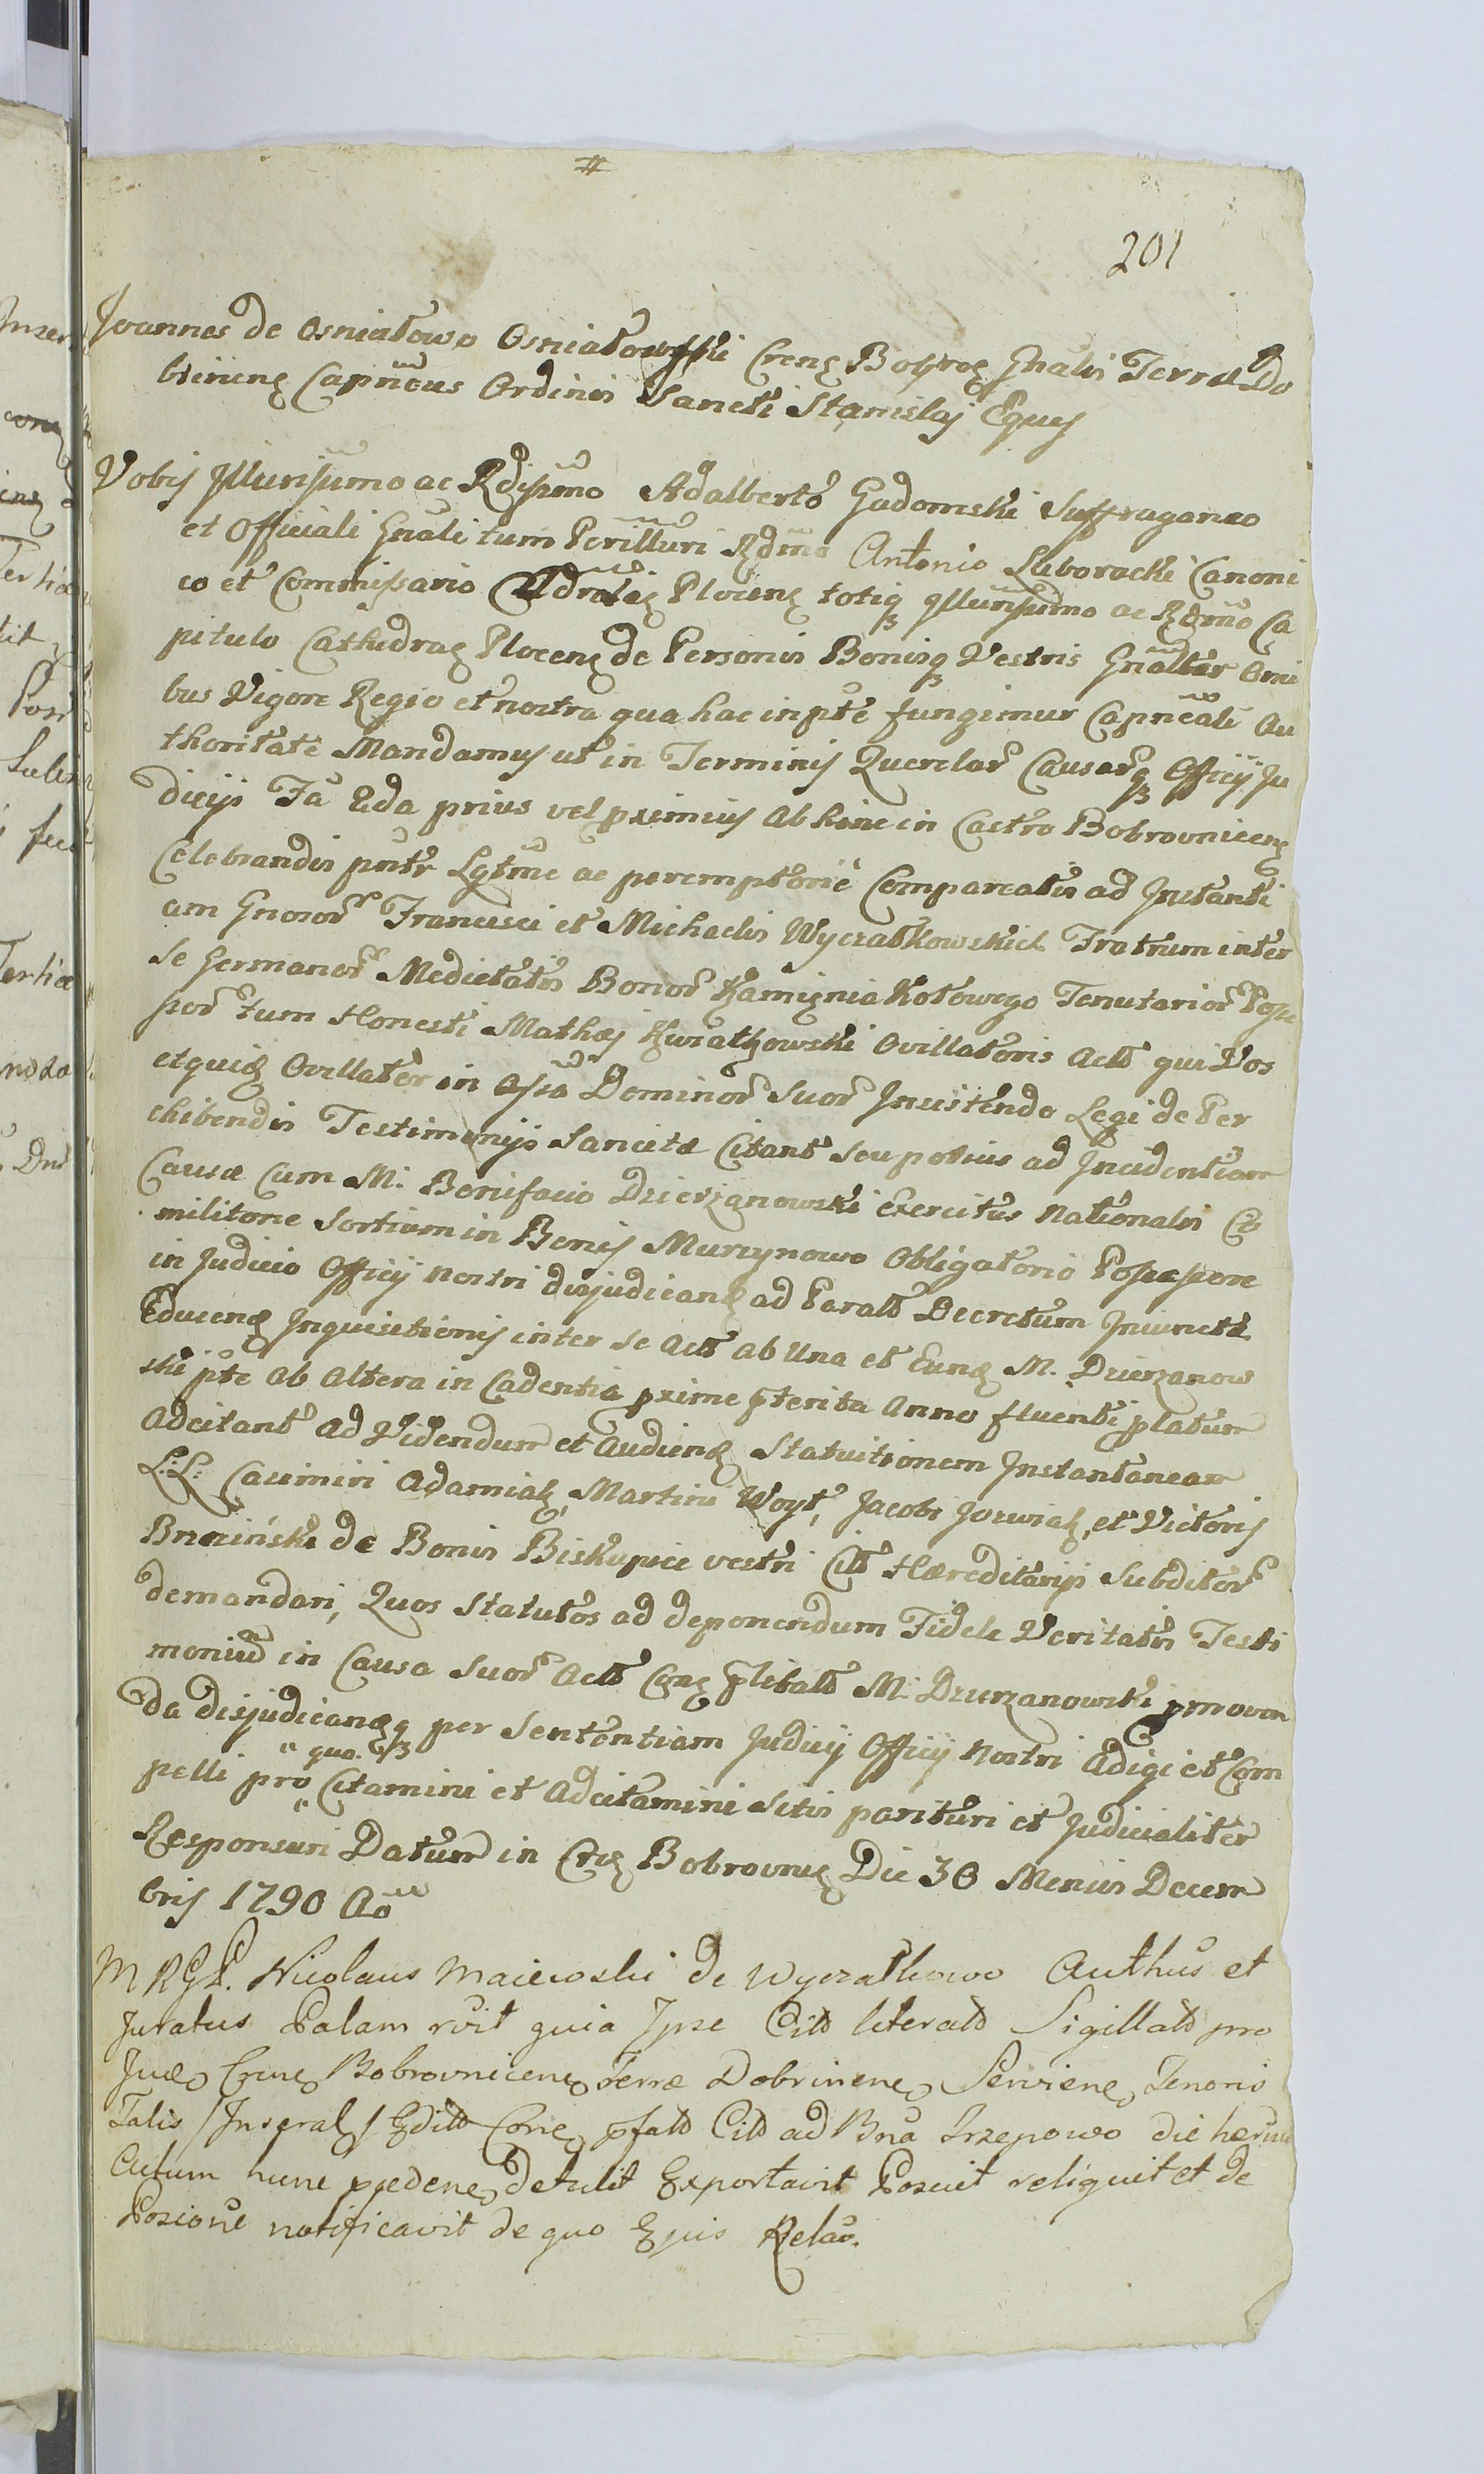 #
201
Joannes de Osniałowo Osniałowski Crens Bobrov Gnalis Terræ Do
brinens Capneus Ordinis Sancti Stanislaj Eques
Vobis Illurissimo ac Rdissimo Adalberto Gadomski Suffraganeo
et Officiali Gnali tum Perilluri Rdmo Antonio Luboracki Canoni
co et Commissario Cthdralis Plocens totiq Illurissimo ac Rdmo Ca
pitulo Cathedrae Plocens de Personis Bonisq Vestris Gnaliter Omi
bus Vigore Regio et nostra qua hac inpte fungimur Capneali Au
thoritate Mandamus ut in Terminis Querelar Causarq Officij Ju
dicijs Fa 2da prius vel pximius ab hinc in Castro Bobrovnicens
Celebrandis pntr Lgtme ac peremptorie Compareatis ad Instanti
am Gnosor Francisci et Michaelis Wyczałkowskich Fratrum inter
se Germanor Medietatis Bonor Kamięnia Kotowego Tenutarior Posse
ssor tum Honesti Mathæj Kwiatkowski Ovillatoris Actt qui Vos
et quid Ovillator in assa Dominor Suor Insistendo Legi de Per
chibendis Testimonijs Sancitæ Citant seu potius ad Incidentiam
Causæ Cum M. Bonifacio Dzierzanowski Exercitus Nationalis Co
militone Sortium in Bonis Murzynowo Obligatorio Possessore
in Judicio Officij nostri disjudicand ad Paratt Decretum Iniuncta
Educend Inquisitionis inter se Actt ab Una et Eund M. Dzierzanow
ski pte ab Altera in Cadentia pxime pterita Anno fluenti platum
Adcitant ad Videndum et Audiend Statuitionem Instantanear
L:L: Casimiri Adamiak, Martini Woyt, Jacobi Jozwiak, et Victoris
Brzeziński de Bonis Biskupice vestri Citt Hæreditarijs Subditor
demandari, Quos Statutos ad deponendum Fidele Veritatis Testi
moniu in Causa Suor Actt Cons plibatt M. Dzierzanowski pmoven
da disjudicandaq per Sententiam Judicij Officij Nostri Adigi et Com
pelli pro quo Citamini et Adcitamini Sitis parituri et Judicialiter
Responsuri Datum in Cro Bobrovnic Die 30 Mensis Decem
bris 1790 Ao
M R G P. Nicolaus Maiewski de Wyczałkowo Authus et
Juratus Palam rvit quia Ipse Citt literatt Sigillatt pro
Jud Crens Bobrovnicens Terræ Dobrinens Serviens Tenoris
Talis /Inseral/ Editt Corie pfatt Citt ad Bna Srzepowo die heru
Actum hunc pcedens detulit Exportavit Posuit reliquit et de
Posione notificavit de quo Ejus Relao.